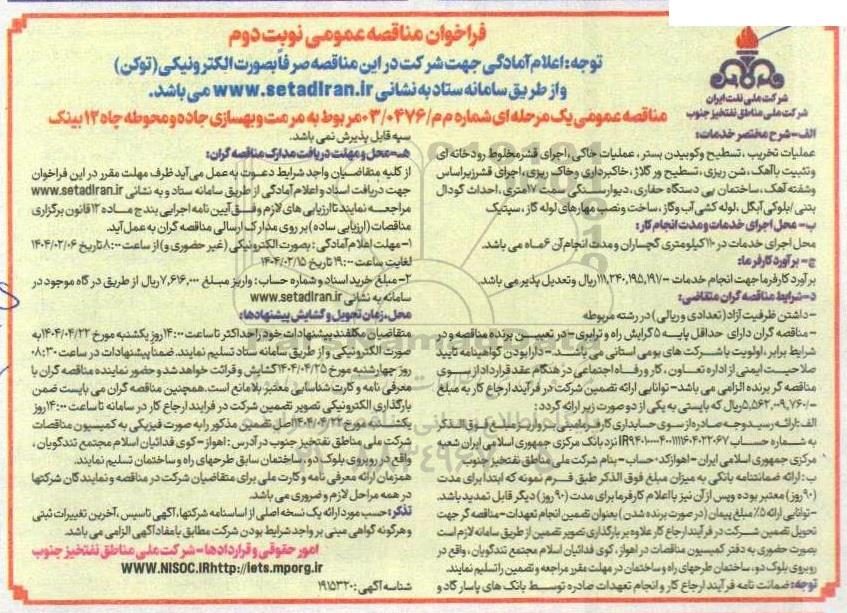 فراخوان مناقصه عمومی نوبت دوم
توجه: اعلام آمادگی جهت شرکت در این مناقصه صرفاً بصورت الکترونیکی (توکن)
و از طریق سامانه ستاد به نشانی www.setadIran.ir می باشد.
مناقصه عمومی یک مرحله ای شماره م م/۰۳/۰۴۷۶ مربوط به مرمت و بهسازی جاده و محوطه چاه ۱۲ بینک
شرکت ملی نفت ایران
شرکت ملی مناطق نفتخیز جنوب
الف- شرح مختصر خدمات:
عملیات تخریب، تسطیح و کوبیدن بستر، عملیات خاکی، اجرای قشر مخلوط رودخانه ای
و تثبیت با آهک، شن ریزی، تسطیح ور گلاژ، خاکبرداری و خاک ریزی، اجرای قشر زیر اساس
وشفته آهک، ساختمان پی دستگاه حفاری، دیوار سنگی سمت ۱۷متری، احداث گودال
بتنی/بلوکی آبگل، لوله کشی آب وگاز، ساخت ونصب مهارهای لوله گاز، سپتیک
ب- محل اجرای خدمات و مدت انجام کار:
محل اجرای خدمات در ۱۱۰کیلومتری گچساران و مدت انجام آن ۶ماه می باشد.
ج- برآورد کارفرما:
برآورد کارفرما جهت انجام خدمات -/۱۱۱,۲۴۰,۱۹۵,۱۹۷ریال وتعدیل پذیر می باشد.
د- شرایط مناقصه گران متقاضی:
- داشتن ظرفیت آزاد (تعدادی و ریالی) در رشته مربوطه
- مناقصه گران دارای حداقل پایه ۵ گرایش راه و ترابری - در تعیین برنده مناقصه و در
شرایط برابر، اولویت با شرکت های بومی استانی می باشد. - دارا بودن گواهینامه تایید
صلاحیت ایمنی از اداره تعاون، کار و رفاه اجتماعی در هنگام عقد قرارداد از سوی
مناقصه گر برنده الزامی می باشد - توانایی ارائه تضمین شرکت در فرآیند ارجاع کار به مبلغ
-/۵,۵۶۲,۰۰۹,۷۶۰ریال که بایستی به یکی از دو صورت زیر ارائه گردد:
الف: ارائه رسید وجه صادره از سوی حسابداری کارفرما مبنی بر واریز مبلغ فوق الذکر
به شماره حساب IR۹۴۰۱۰۰۰۰۴۰۰۱۱۱۱۶۰۴۰۲۲۰۶۷ نزد بانک مرکزی جمهوری اسلامی ایران شعبه
مرکزی جمهوری اسلامی ایران - اهواز کد - حساب - بنام شرکت ملی مناطق نفتخیز جنوب
ب: ارائه ضمانتنامه بانکی به میزان مبلغ فوق الذکر طبق فرم نمونه که ابتدا برای مدت
(۹۰روز) معتبر بوده و پس از آن نیز با اعلام کارفرما برای مدت (۹۰روز) دیگر قابل تمدید باشد.
- توانایی ارائه ۵٪ مبلغ پیمان (در صورت برنده شدن) بعنوان تضمین انجام تعهدات - مناقصه گر جهت
تحویل تضمین شرکت در فرآیند ارجاع کار علاوه بر بارگذاری تصویر تضمین از طریق سامانه لازم است
بصورت حضوری به دفتر کمیسیون مناقصات در اهواز، کوی فدائیان اسلام مجتمع تندگویان، واقع در
روبروی بلوک دو، ساختمان طرحهای راه و ساختمان در مهلت مقرر مراجعه و تضمین را تسلیم نمایند.
توجه: ضمانت نامه فرآیند ارجاع کار و انجام تعهدات صادره توسط بانک های پاسارگاد و
سپه قابل پذیرش نمی باشد.
هـ- محل و مهلت دریافت مدارک مناقصه گران:
از کلیه متقاضیان واجد شرایط دعوت به عمل می آید ظرف مهلت مقرر در این فراخوان
جهت دریافت اسناد و اعلام آمادگی از طریق سامانه ستاد و به نشانی www.setadIran.ir
مراجعه نمایند تا ارزیابی های لازم وفق آیین نامه اجرایی بند ج ماده ۱۲ قانون برگزاری
مناقصات (ارزیابی ساده) بر روی مدارک ارسالی مناقصه گران به عمل آید.
۱- مهلت اعلام آمادگی: بصورت الکترونیکی (غیر حضوری و) از ساعت ۸:۰۰ تاریخ ۱۴۰۴/۰۲/۰۶
لغایت ساعت ۱۹:۰۰ تاریخ ۱۴۰۴/۰۲/۱۵
۲- مبلغ خرید اسناد و شماره حساب: واریز مبلغ ۷,۶۱۶,۰۰۰ریال از طریق در گاه موجود در
سامانه به نشانی www.setadIran.ir
محل، زمان تحویل و گشایش پیشنهادها:
متقاضیان مکلفند پیشنهادات خود را حداکثر تا ساعت ۱۴:۰۰ روز یکشنبه مورخ ۱۴۰۴/۰۴/۲۲ به
صورت الکترونیکی و از طریق سامانه ستاد تسلیم نمایند. ضمنا پیشنهادات در ساعت ۰۸:۳۰
روز چهارشنبه مورخ ۱۴۰۴/۰۴/۲۵ گشایش و قرائت خواهد شد و حضور نماینده مناقصه گران با
معرفی نامه و کارت شناسایی معتبر بلامانع است. همچنین مناقصه گران می بایست ضمن
بارگذاری الکترونیکی تصویر تضمین شرکت در فرایند ارجاع کار در سامانه تا ساعت ۱۴:۰۰ روز
یکشنبه مورخ ۱۴۰۴/۰۴/۲۲ اصل تضمین مذکور را به صورت فیزیکی به کمیسیون مناقصات
شرکت ملی مناطق نفتخیز جنوب در آدرس: اهواز - کوی فدائیان اسلام مجتمع تندگویان،
واقع در روبروی بلوک دو، ساختمان سابق طرحهای راه و ساختمان تسلیم نمایند.
همزمان ارائه معرفی نامه و کارت ملی برای متقاضیان شرکت در مناقصه و نمایندگان شرکتها
در همه مراحل لازم و ضروری می باشد.
تذکر: حسب مورد ارائه یک نسخه اصلی از اساسنامه شرکتها، آگهی تاسیس، آخرین تغییرات ثبتی
و هرگونه گواهی مبنی بر واجد شرایط بودن شرکت مطابق با مفاد آگهی الزامی می باشد.
امور حقوقی و قراردادها - شرکت ملی مناطق نفتخیز جنوب
WWW.NISOC.IR http://iets.mporg.ir
شناسه آگهی: ۱۹۱۵۳۲۰